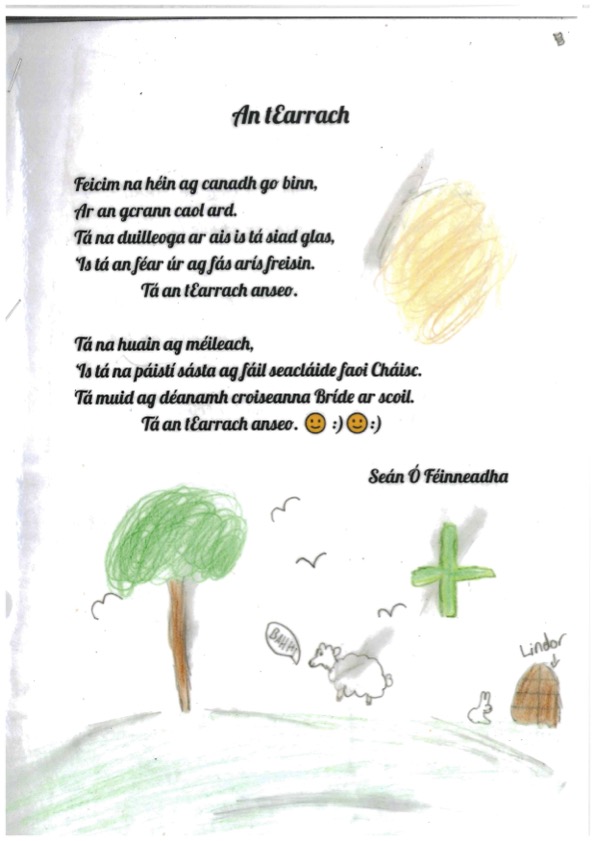 An tEarrach
Feicim na héin ag canadh go binn,
Ar an gcrann caol ard.
Tá na duilleoga ar ais is tá siad glas,
'Is tá an féar úr ag fás arís freisin.
Tá an tEarrach anseo.
Tá na huain ag méileach,
'Is tá na páistí sásta ag fáil seacláide faoi Cháisc.
Tá muid ag déanamh croiseanna Bríde ar scoil.
Tá an tEarrach anseo. 🙂 :) 🙂 :)
Seán Ó Féinneadha
BAHH
Lindor